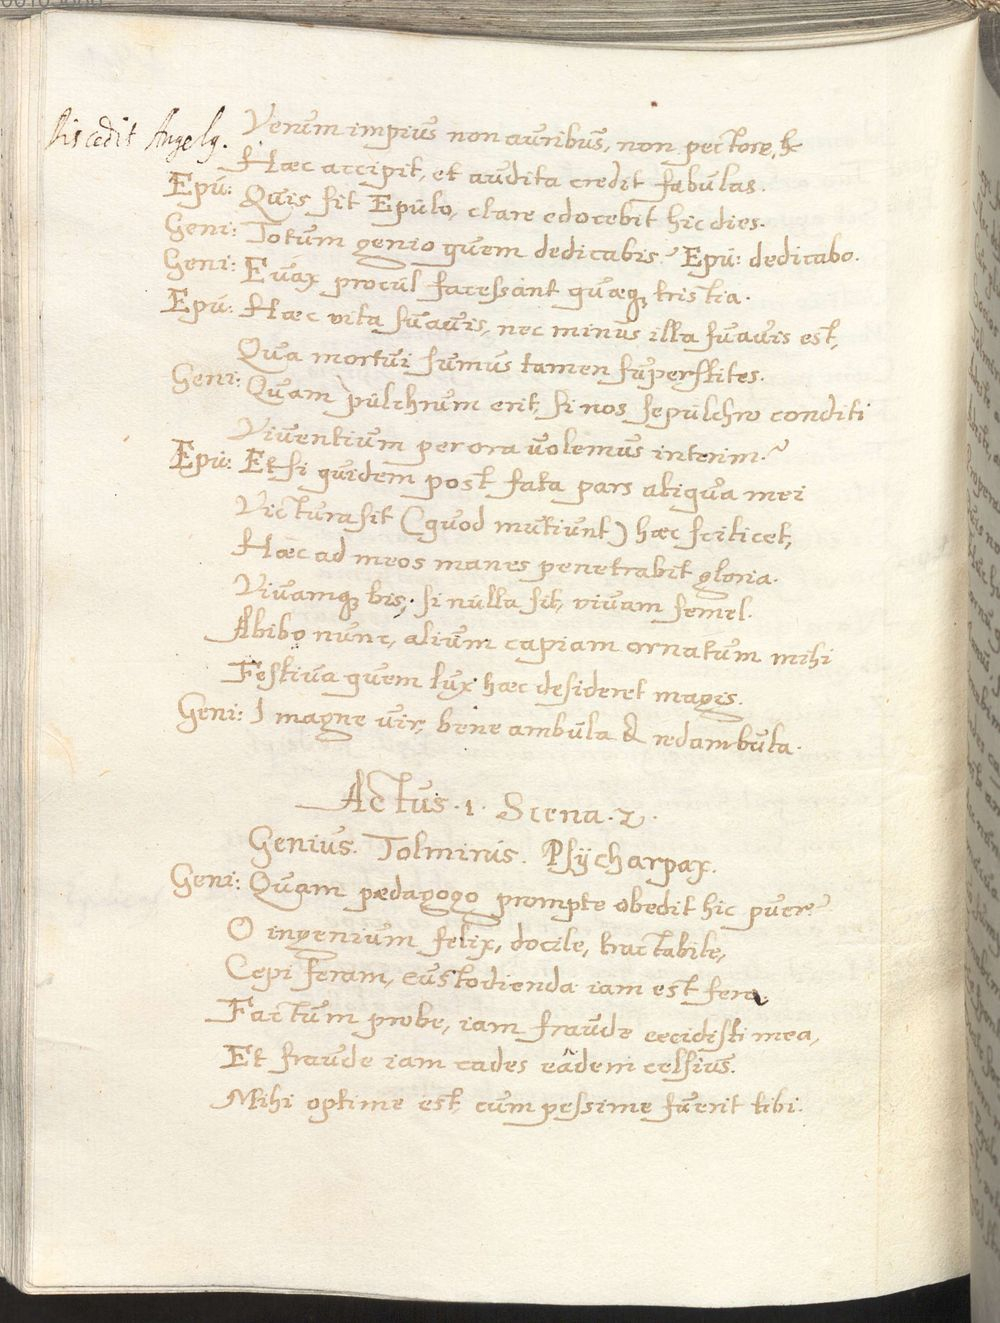 Discedit Angelꝰ.
Verùm impius non auribus, non pectore, &
Hæc accipit, et audita credit fabulas.
Epu: Quis sit Epulo, clare edocebit hic dies.
Geni: Totum genio quem dedicabis? Epu: dedicabo.
Geni: Euax procul facessant quæqꝫ tristia.
Epu: Hæc vita suauis, nec minus illa suauis est,
Qua mortui sumus tamen superstites.
Geni: Quàm pulchrum erit, si nos sepulchro conditi
Viuentium per ora uolemus interim?
Epu: Et si quidem post fata pars aliqua mei
Victura sit (quod mutiunt) hæc scilicet,
Hæc ad meos manes penetrabit gloria.
Viuamqꝫ bis; si nulla sit, viuam semel.
Abibo nunc, alium capiam ornatum mihi
Festiua quem lux hæc desideret magis.
Geni: I magne uir, bene ambula & redambula.
Actus. 1. Scena. 2.
Genius. Tolmirus. Psÿcharpax.
Geni: Quam pædagogo prompte obedit hic puer?
O ingenium felix, docile, tractabile,
Cepi feram, custodienda iam est fera.
Factum probe, iam fraude cecidisti mea,
Et fraude iam cades eâdem celsius.
Mihi optime est, cum pessime fuerit tibi.